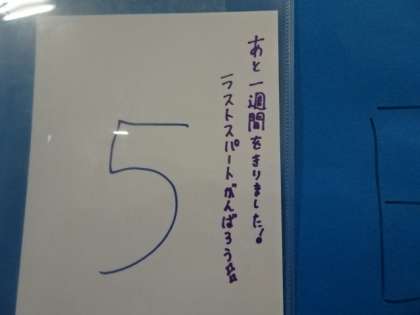 あと一週間をきりました!
ラストスパートがんばろう☆☆
5